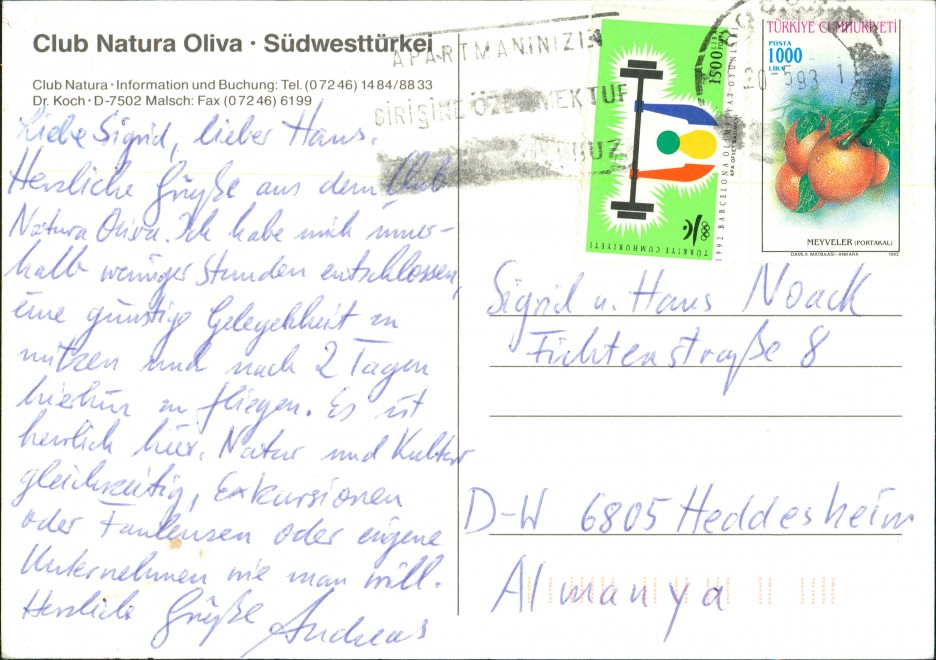 Club Natura Oliva · Südwesttürkei
Club Natura · Information und Buchung: Tel. (0 72 46) 14 84/88 33
Dr. Koch · D-7502 Malsch: Fax (0 72 46) 6199
Liebe Sigrid, lieber Hans.
Herzliche Grüße aus dem Club
Natura Oliva. Ich habe mich inner-
halb weniger Stunden entschlossen,
eine günstige Gelegenheit zu
nützen und nach 2 Tagen
hierhin zu fliegen. Es ist
herrlich hier. Natur und Kultur
gleichzeitig, Exkursionen
oder Faulenzen oder eigene
Unternehmen wie man will.
Herzliche Grüße Andreas
APARTMANINIZIN
GİRİŞİNE ÖZEL MEKTUP
1500 LİRA
1992 BARCELONA OLİMPİYAT OYUNLARI
TÜRKİYE CUMHURİYETİ
TÜRKİYE CUMHURİYETİ
POSTA
1000
LİRA
20-5 93 1
MEYVELER (PORTAKAL)
DAMLA MATBAASI-ANKARA 1993
Sigrid u. Hans Noack
Fichtenstraße 8
D-W 6805 Heddesheim
Almanya